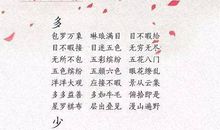 多
包罗万象 琳琅满目 目不暇给
目不暇接 目迷五色 无穷无尽
无所不包 五彩缤纷 五花八门
五色缤纷 五颜六色 眼花缭乱
洋洋大观 应接不暇 景从云集
多多益善 多如牛毛 俯拾即是
星罗棋布 层出叠见 漫山遍野
少